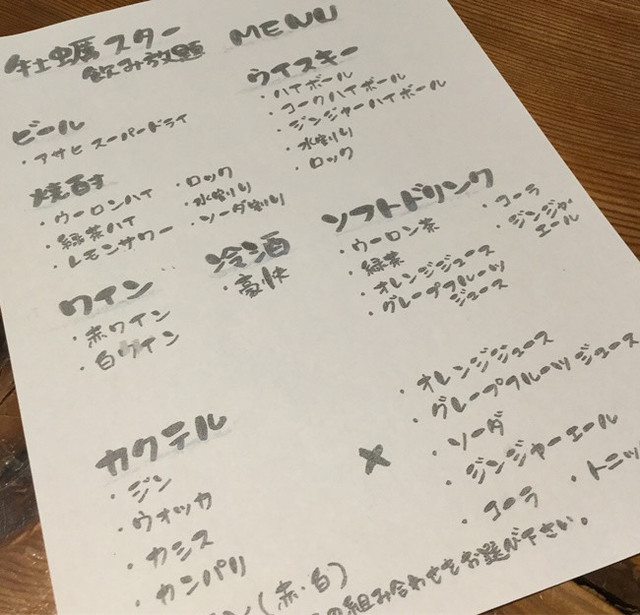 牡蠣スター MENU
飲み放題
ビール
・アサヒ スーパードライ
ウイスキー
・ハイボール
・コークハイボール
・ジンジャーハイボール
・水割り
・ロック
焼酎
・ウーロンハイ
・緑茶ハイ
・レモンサワー
・ロック
・水割り
・ソーダ割り
ソフトドリンク
・ウーロン茶
・緑茶
・オレンジジュース
・グレープフルーツ
ジュース
・コーラ
・ジンジャー
エール
ワイン
・赤ワイン
・白ワイン
冷酒
・豪快
カクテル
・ジン
・ウオッカ
・カシス
・カンパリ
×
・オレンジジュース
・グレープフルーツジュース
・ソーダ
・ジンジャーエール
・コーラ ・トニッ
ン(赤・白)
の組み合わせをお選び下さい。